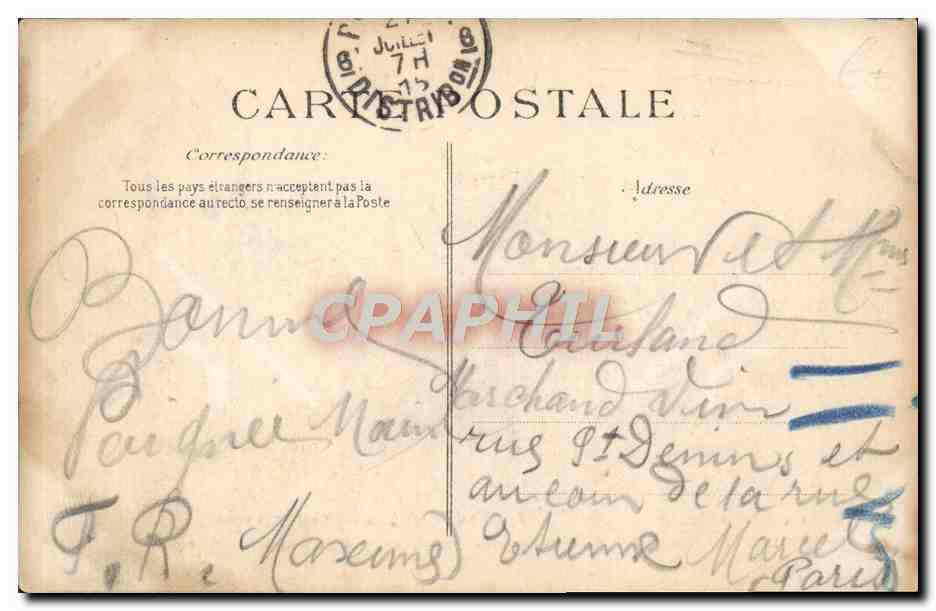 21
JUILLET
7 H
15
8 DISTRIBON 8
CARTE POSTALE
Correspondance:
Tous les pays étrangers n'acceptent pas la
correspondance au recto, se renseigner à la Poste
Adresse
Bonne
Poignee Main
F. R. Maxime
Monsieur et Mme
Marchand Vin
rue St Denins et
au coin de la rue
Etienne Marcel
Paris
CPAPHIL